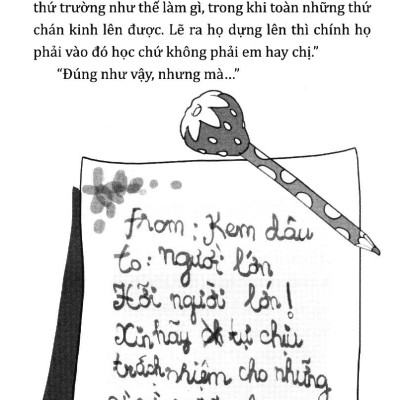 thứ trường như thế làm gì, trong khi toàn những thứ
chán kinh lên được. Lẽ ra họ dựng lên thì chính họ
phải vào đó học chứ không phải em hay chị.”
“Đúng như vậy, nhưng mà...”
from: Kem dâu
to: người lớn
Hỡi người lớn!
Xin hãy tự chủ
trách nhiệm cho những